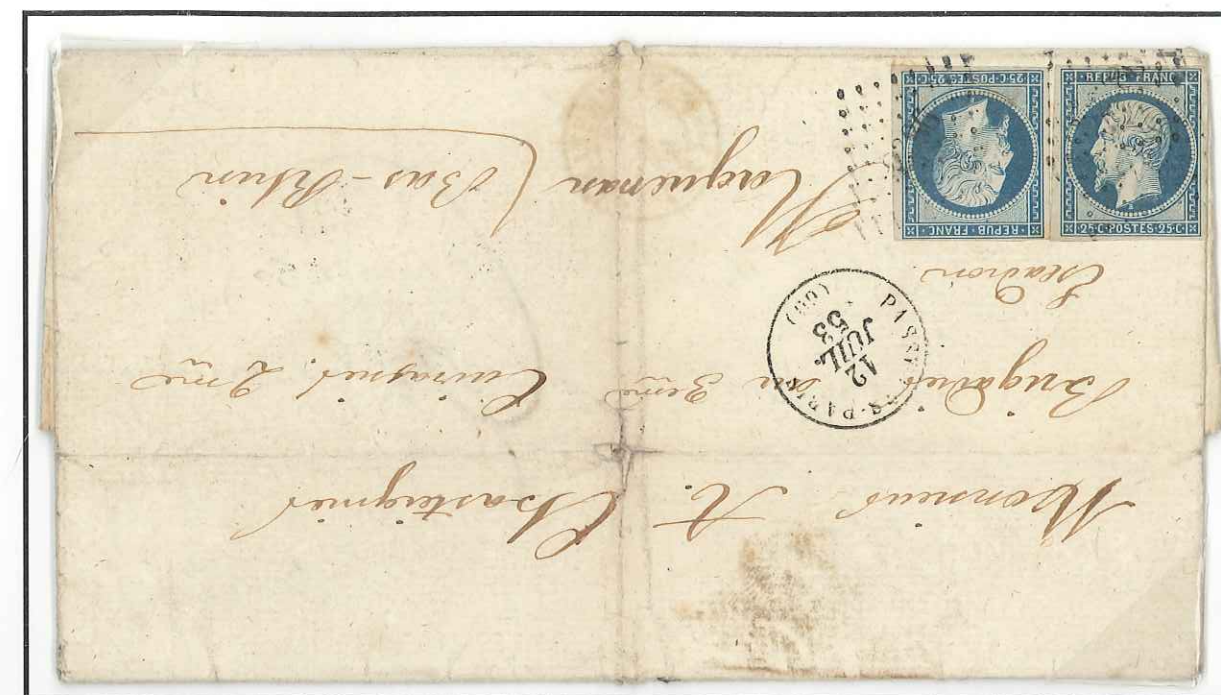 Monsieur A. Chasteignier
Brigadier au 3eme Cuirassiers 2me
Escadron
Haguenau (Bas-Rhin
PASSY-LES-PARIS
12
JUIL.
53
(60)
REPUB. FRANC.
25 C. POSTES 25 C.
REPUB. FRANC.
25 C. POSTES 25 C.